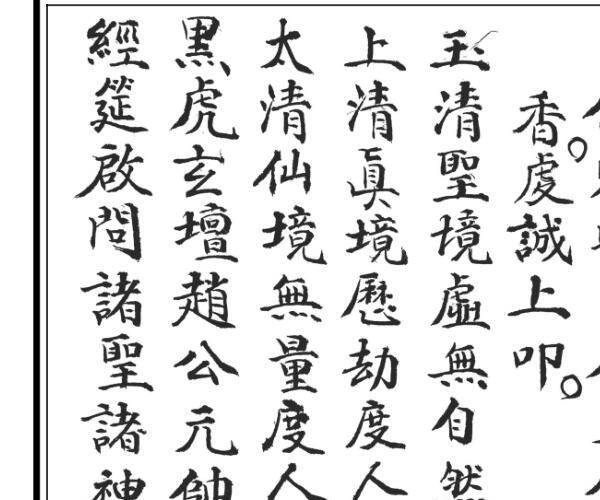 香虔誠上叩。
玉清聖境虛無自然
上清眞境歷劫度人
太清仙境無量度人
黑虎玄壇趙公元帥
經筵啟問諸聖諸神